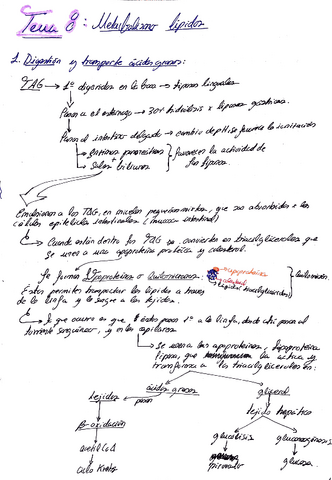 Tema 8: Metabolismo lípidos
1. Digestión y transporte ácidos grasos:
TAG → 1º digeridos en la boca → lipasas linguales
Pasan al estómago → 30% hidrólisis x lipasas gástricas.
Pasan al intestino delgado → cambio de pH se favorece la
enzimas pancreáticas } favorecen la actividad de
Sales biliares las lipasas.
Emulsionan a los TAG, en micelas pequeñas mixtas, que son absorbidas x las
células epiteliales intestinales (mucosa intestinal)
Cuando están dentro los TAG se convierten en triacilgliceroles que
se unen a una apoproteína proteica y colesterol.
Se forma Lipoproteínas o Quilomicrones apoproteína
colesterol
lípidos (triacilglicéridos)
Quilomicrón
Estos permiten transportar los lípidos a través
de la linfa y la sangre a los tejidos.
Lo que ocurre es que esto pasa 1º a la linfa, donde ahí pasa al
torrente sanguíneo, y en los capilares
Se unen a las apoproteínas, lipoproteína
lipasa, que la activa y
transforma a los triacilgliceroles en:
ácidos grasos glicerol
tejidos pasan tejido hepático
β-oxidación glucólisis gluconeogénesis
acetil CoA piruvato glucosa
Ciclo Krebs